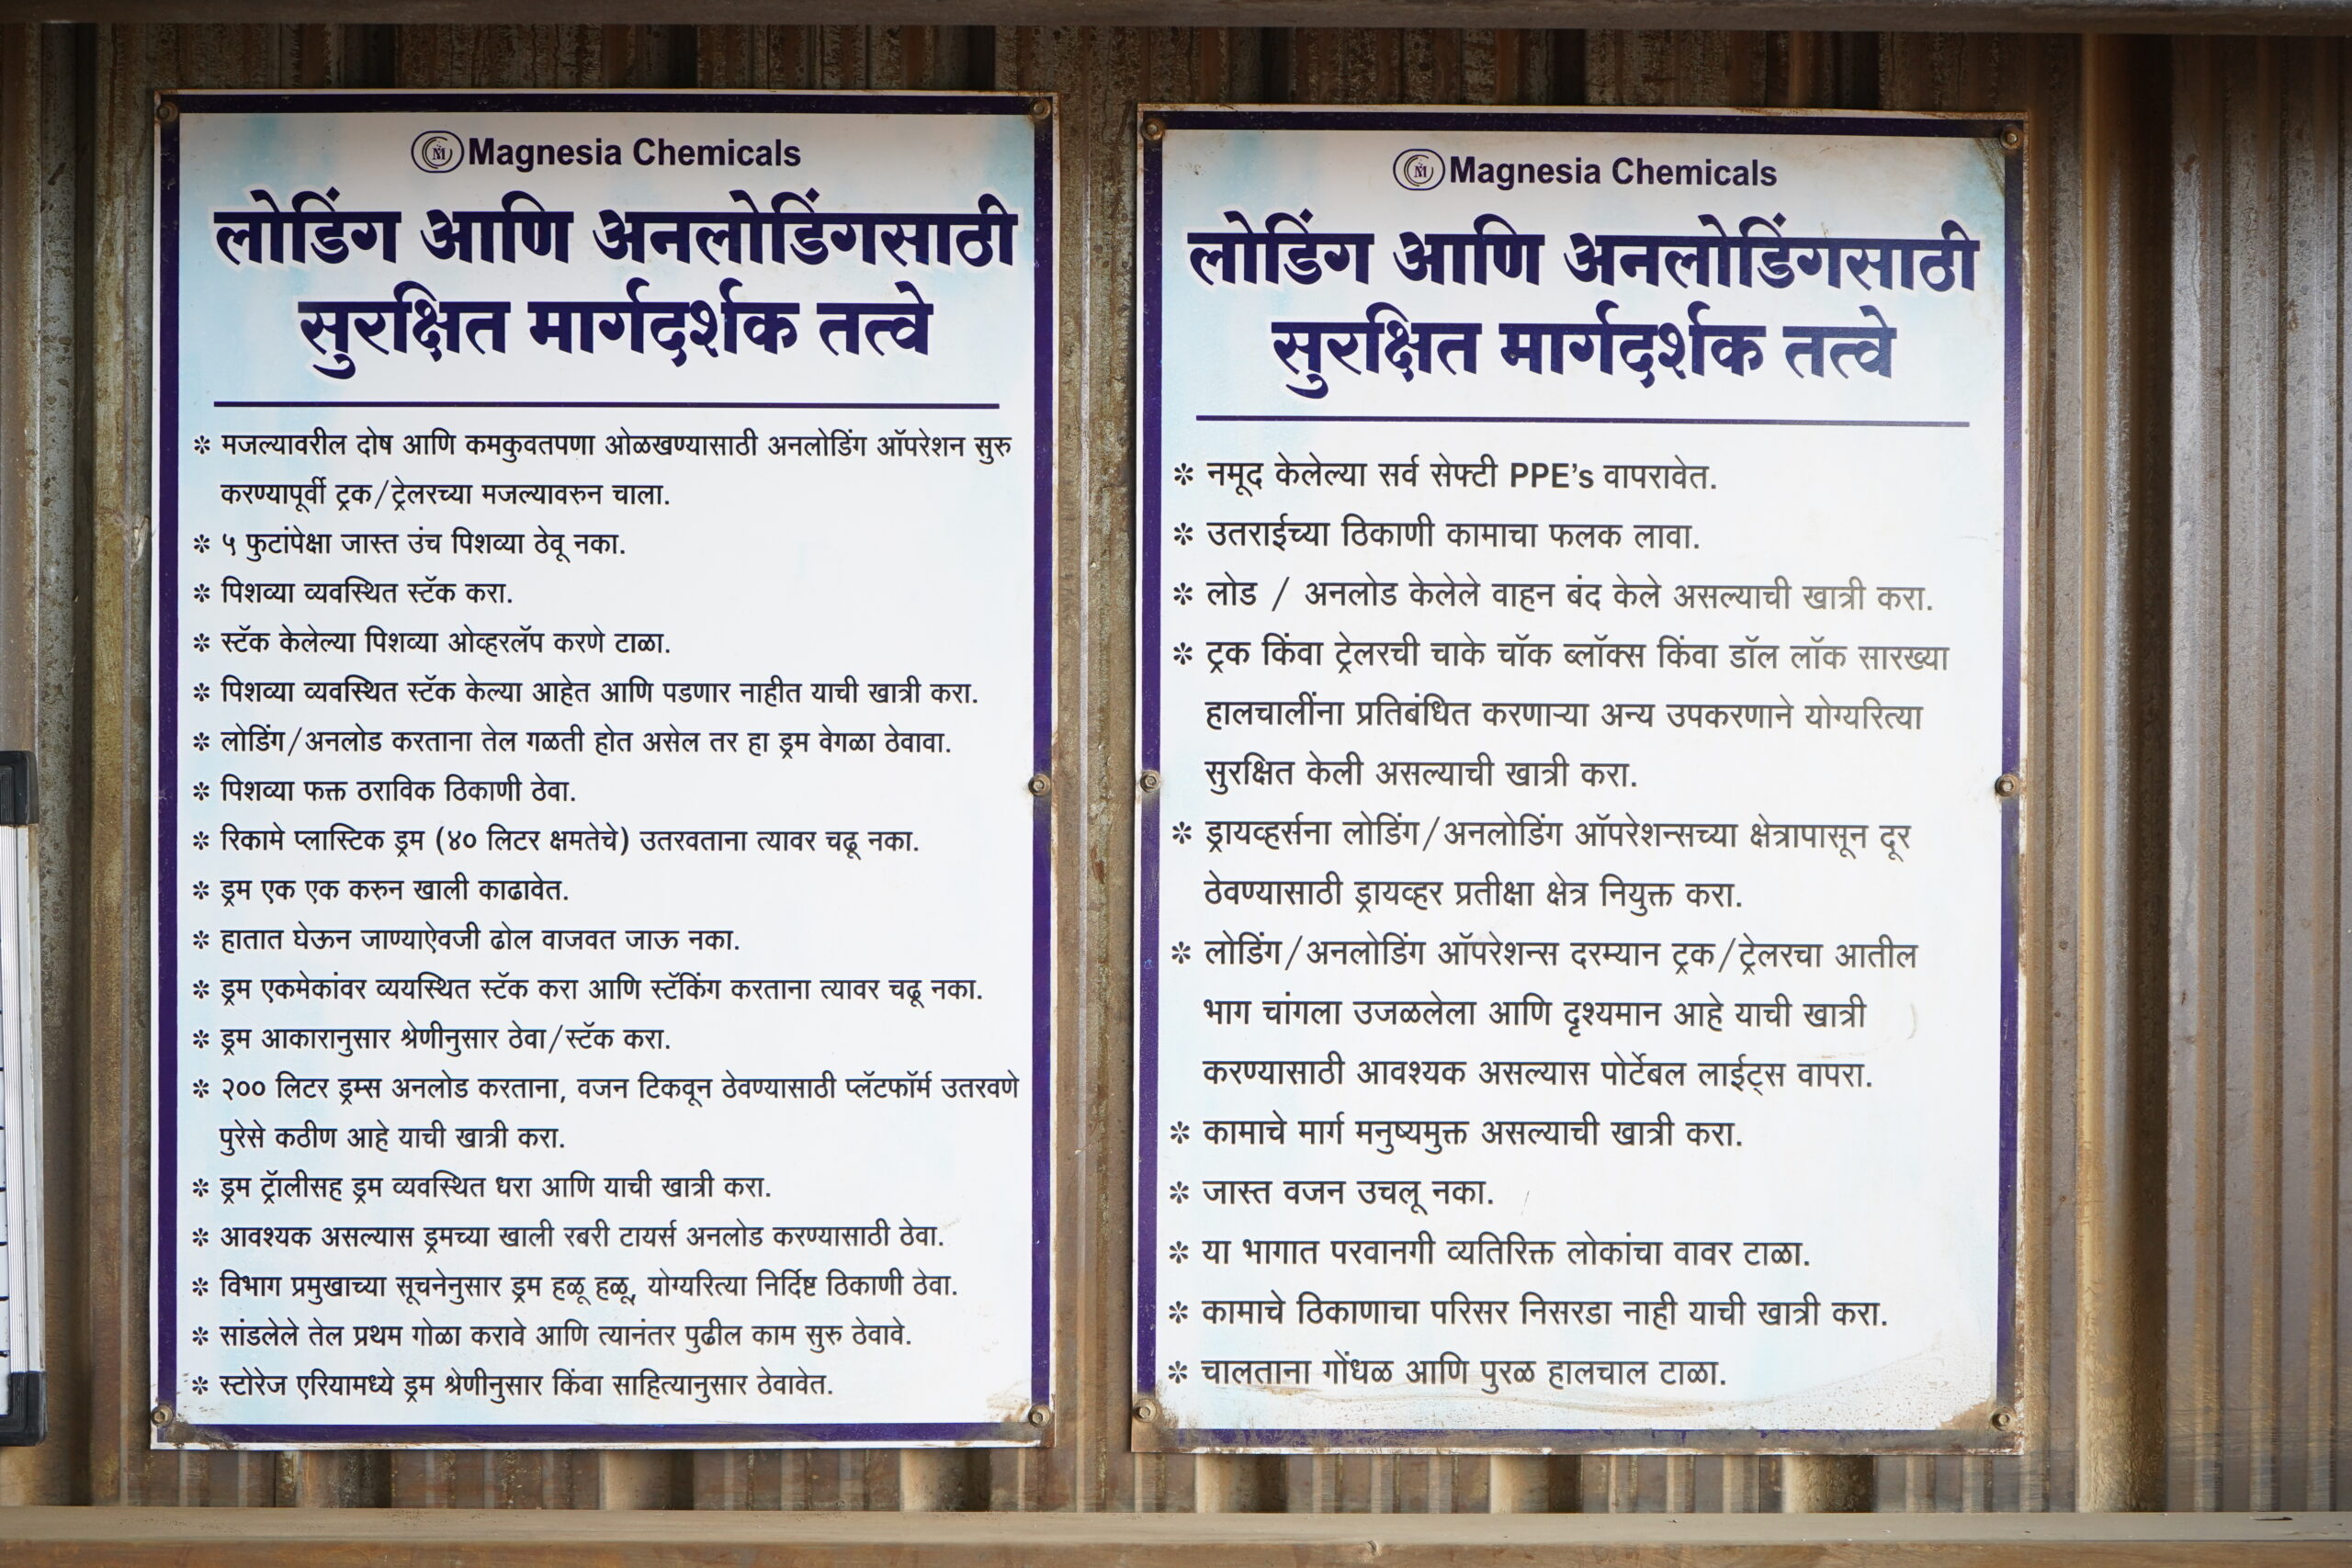 Magnesia Chemicals
लोडिंग आणि अनलोडिंगसाठी
सुरक्षित मार्गदर्शक तत्वे
* मजल्यावरील दोष आणि कमकुवतपणा ओळखण्यासाठी अनलोडिंग ऑपरेशन सुरु
करण्यापूर्वी ट्रक/ट्रेलरच्या मजल्यावरुन चाला.
* ५ फुटांपेक्षा जास्त उंच पिशव्या ठेवू नका.
* पिशव्या व्यवस्थित स्टॅक करा.
* स्टॅक केलेल्या पिशव्या ओव्हरलॅप करणे टाळा.
* पिशव्या व्यवस्थित स्टॅक केल्या आहेत आणि पडणार नाहीत याची खात्री करा.
* लोडिंग/अनलोड करताना तेल गळती होत असेल तर हा ड्रम वेगळा ठेवावा.
* पिशव्या फक्त ठराविक ठिकाणी ठेवा.
* रिकामे प्लास्टिक ड्रम (४० लिटर क्षमतेचे) उतरवताना त्यावर चढू नका.
* ड्रम एक एक करुन खाली काढावेत.
* हातात घेऊन जाण्याऐवजी ढोल वाजवत जाऊ नका.
* ड्रम एकमेकांवर व्ययस्थित स्टॅक करा आणि स्टॅकिंग करताना त्यावर चढू नका.
* ड्रम आकारानुसार श्रेणीनुसार ठेवा/स्टॅक करा.
* २०० लिटर ड्रम्स अनलोड करताना, वजन टिकवून ठेवण्यासाठी प्लॅटफॉर्म उतरवणे
पुरेसे कठीण आहे याची खात्री करा.
* ड्रम ट्रॉलीसह ड्रम व्यवस्थित धरा आणि याची खात्री करा.
* आवश्यक असल्यास ड्रमच्या खाली रबरी टायर्स अनलोड करण्यासाठी ठेवा.
* विभाग प्रमुखाच्या सूचनेनुसार ड्रम हळू हळू, योग्यरित्या निर्दिष्ट ठिकाणी ठेवा.
* सांडलेले तेल प्रथम गोळा करावे आणि त्यानंतर पुढील काम सुरु ठेवावे.
* स्टोरेज एरियामध्ये ड्रम श्रेणीनुसार किंवा साहित्यानुसार ठेवावेत.
Magnesia Chemicals
लोडिंग आणि अनलोडिंगसाठी
सुरक्षित मार्गदर्शक तत्वे
* नमूद केलेल्या सर्व सेफ्टी PPE’s वापरावेत.
* उतराईच्या ठिकाणी कामाचा फलक लावा.
* लोड / अनलोड केलेले वाहन बंद केले असल्याची खात्री करा.
* ट्रक किंवा ट्रेलरची चाके चॉक ब्लॉक्स किंवा डॉल लॉक सारख्या
हालचालींना प्रतिबंधित करणाऱ्या अन्य उपकरणाने योग्यरित्या
सुरक्षित केली असल्याची खात्री करा.
* ड्रायव्हर्सना लोडिंग/अनलोडिंग ऑपरेशन्सच्या क्षेत्रापासून दूर
ठेवण्यासाठी ड्रायव्हर प्रतीक्षा क्षेत्र नियुक्त करा.
* लोडिंग/अनलोडिंग ऑपरेशन्स दरम्यान ट्रक/ट्रेलरचा आतील
भाग चांगला उजळलेला आणि दृश्यमान आहे याची खात्री
करण्यासाठी आवश्यक असल्यास पोर्टेबल लाईट्स वापरा.
* कामाचे मार्ग मनुष्यमुक्त असल्याची खात्री करा.
* जास्त वजन उचलू नका.
* या भागात परवानगी व्यतिरिक्त लोकांचा वावर टाळा.
* कामाचे ठिकाणाचा परिसर निसरडा नाही याची खात्री करा.
* चालताना गोंधळ आणि पुरळ हालचाल टाळा.